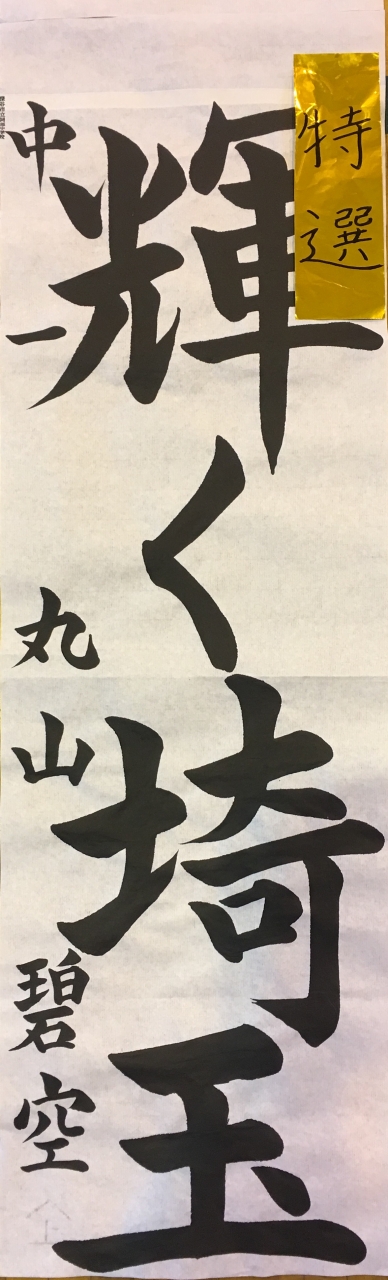 特選
輝く埼玉
中一 丸山碧空